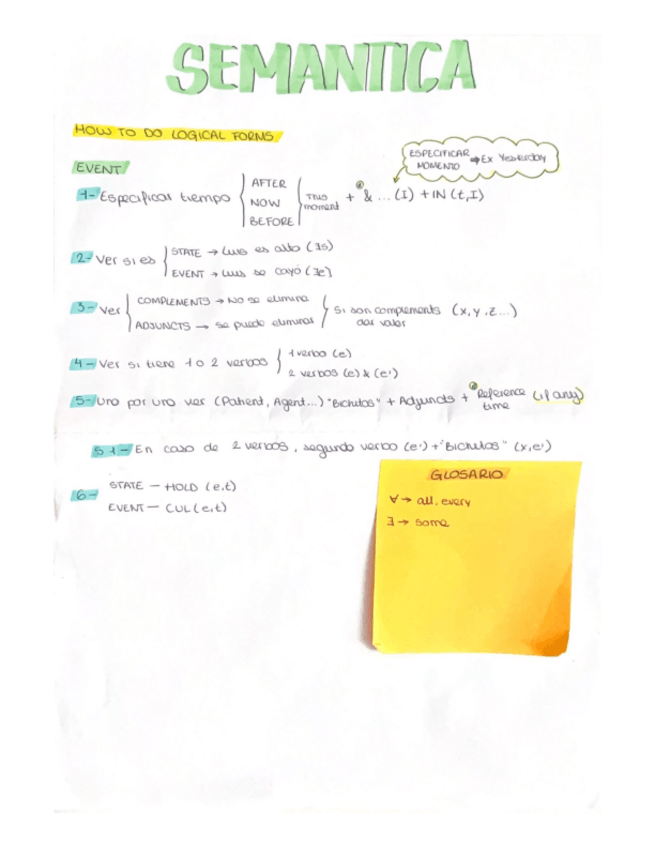 SEMANTICA
HOW TO DO LOGICAL FORMS
ESPECIFICAR MOMENTO → Ex Yesterday
EVENT
1- Especificar tiempo { AFTER NOW BEFORE { This moment + & ... (I) + IN (t,I)
2- Ver si es { STATE → Luis es alto (∃s)
EVENT → Luis se cayó (∃e)
3- Ver { COMPLEMENTS → No se elimina
ADJUNCTS → se puede eliminar
Si son complements (x,y,z...)
dar valor
4- Ver si tiene 1 o 2 verbos { 1 verbo (e)
2 verbos (e) & (e')
5- Uno por uno ver (Patient, Agent...) "Bichitos" + Adjuncts + Reference time (if any)
5.1- En caso de 2 verbos, segundo verbo (e') + "Bichitos" (x,e')
6- STATE - HOLD (e,t)
EVENT - CUL (e,t)
GLOSARIO
∀ → all, every
∃ → some